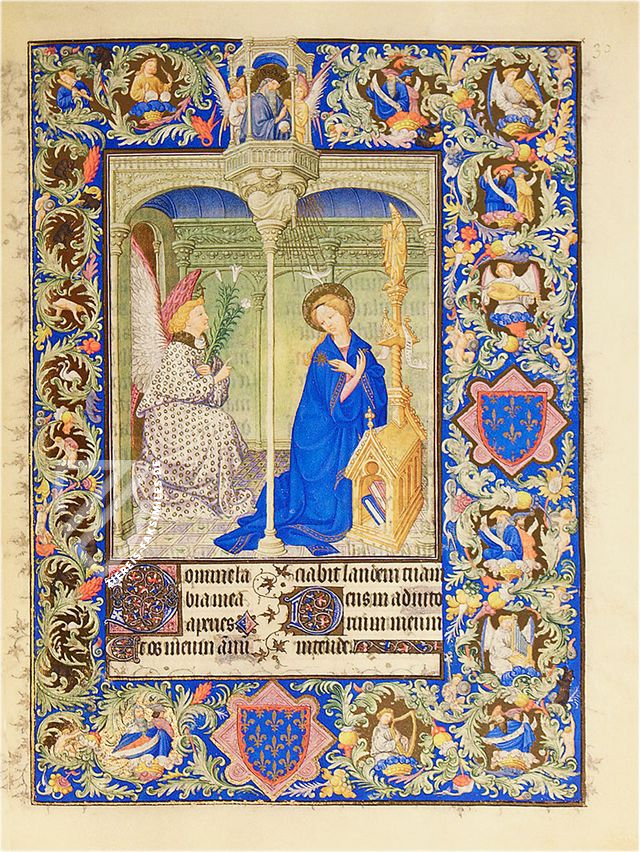 30
Domine la
bia mea
aperies
Et os meum annu
ciabit laudem tuam
Deus in adiuto
rium meum
intende.